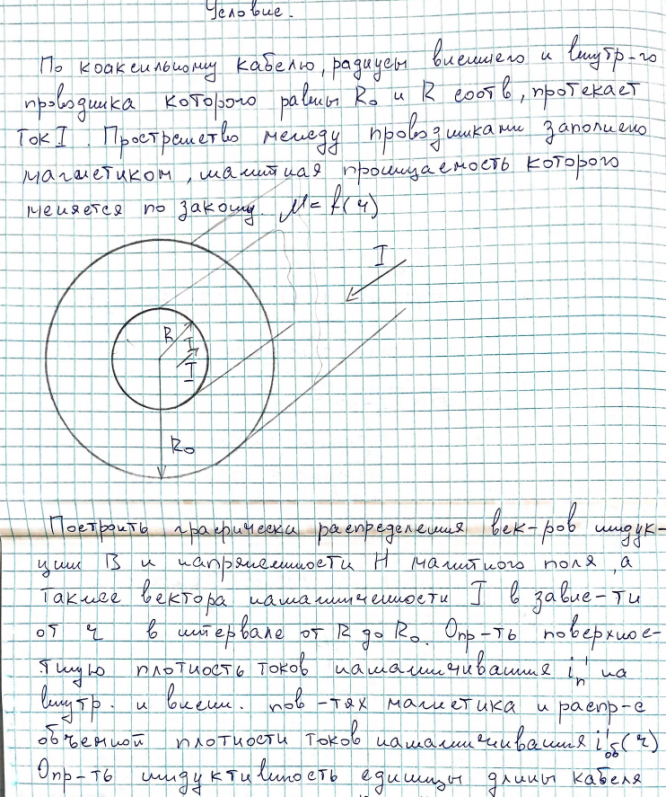 Условие.
По коаксильному кабелю, радиусы внешнего и внутр-го
проводника которого равны R₀ и R соотв, протекает
ток I. Пространство между проводниками заполнено
магнетиком, магнитная проницаемость которого
меняется по закону. μ = f(r)
I
R
I
R₀
Построить графически распределения век-ров индук-
ции B и напряженности H магнитного поля, а
также вектора намагниченности I в завис-ти
от r в интервале от R до R₀. Опр-ть поверхнос-
тную плотность токов намагничивания i'п на
внутр. и внешн. пов-тях магнетика и распр-е
объемной плотности токов намагничивания i'об(r)
Опр-ть индуктивность единицы длины кабеля